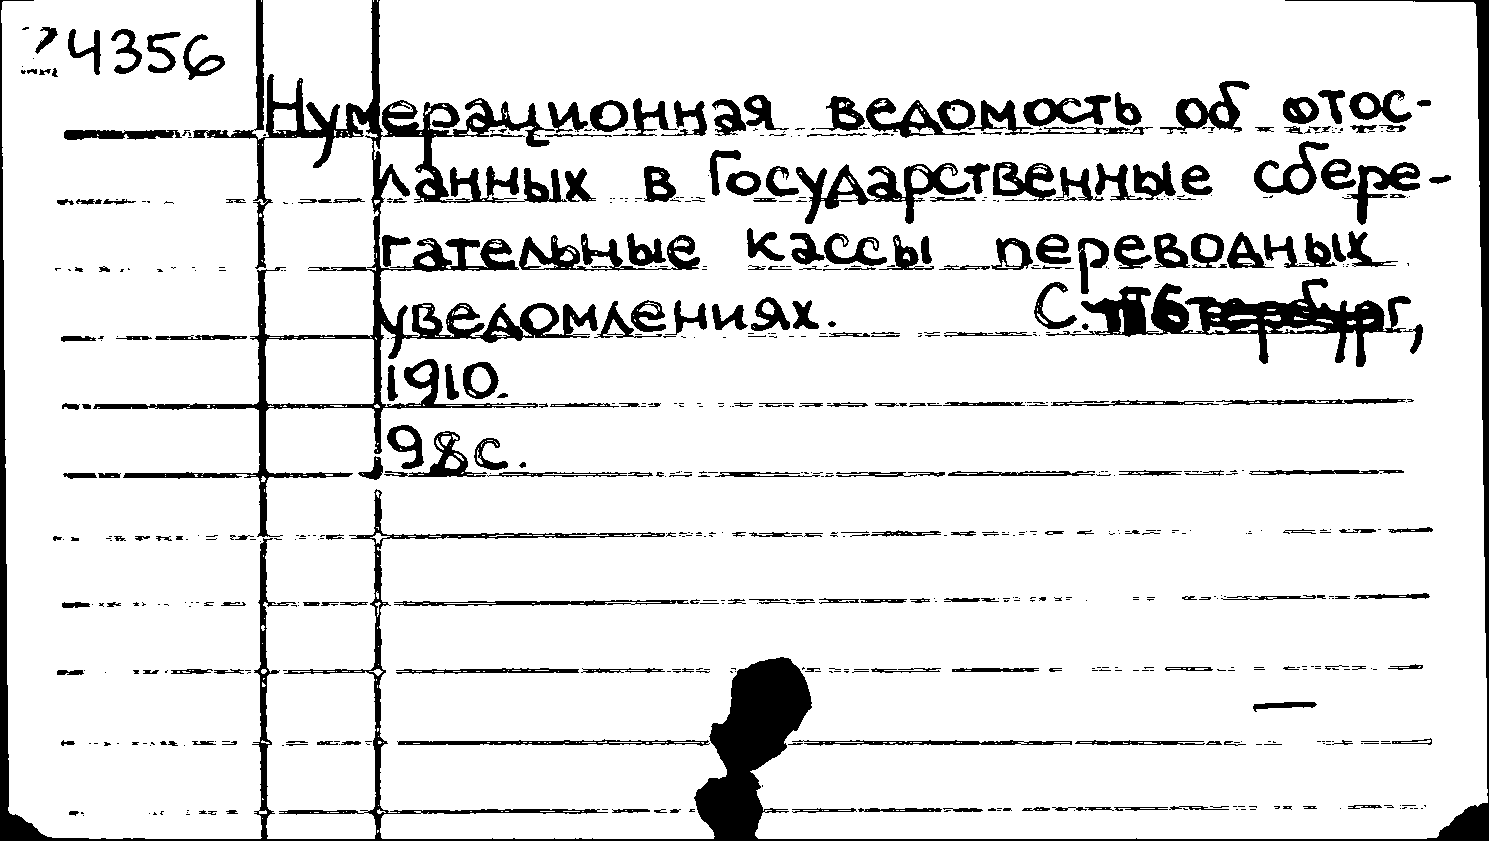 24356
Нумерационная ведомость об отос-
ланных в Государственные сбере-
гательные кассы переводных
уведомлениях. С.
1910.
98 с.